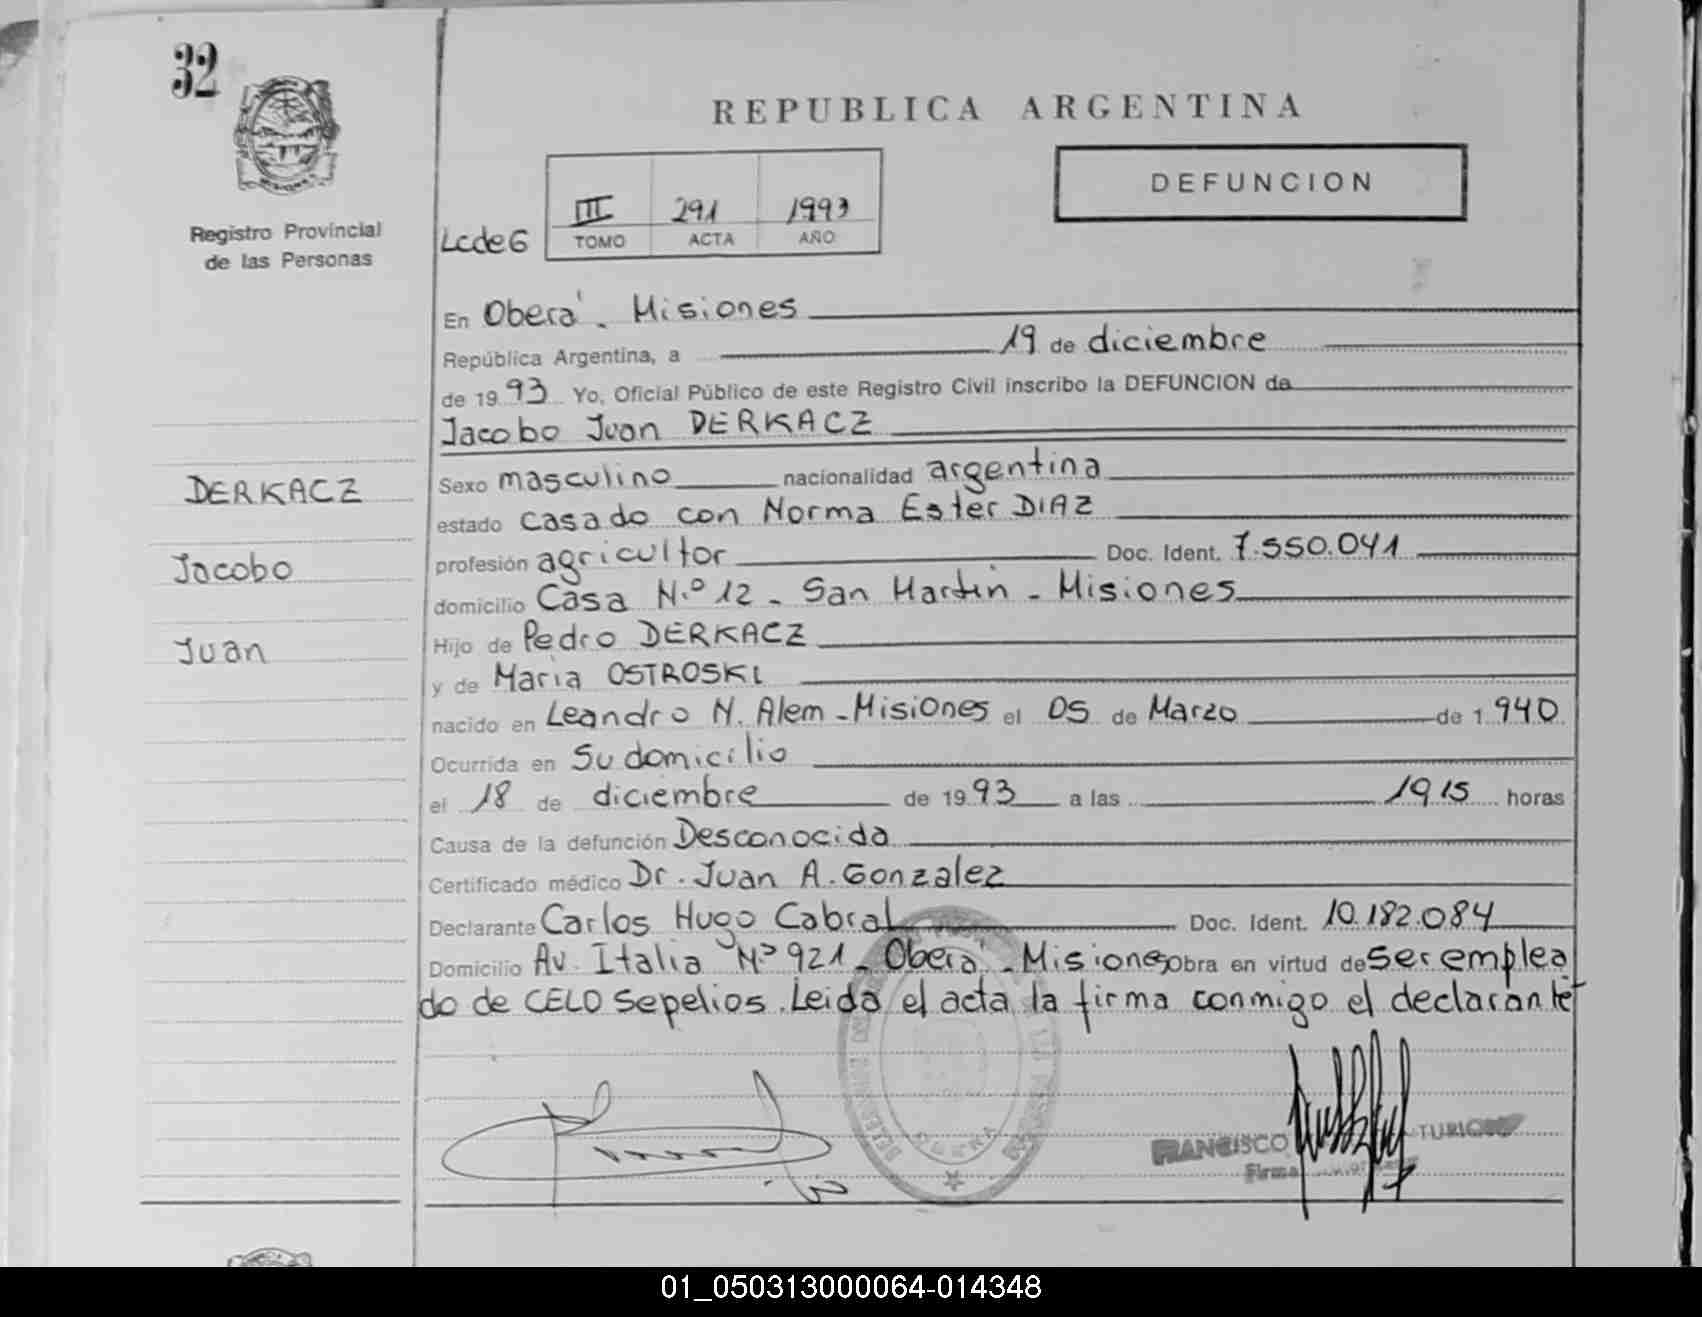 32
REPUBLICA ARGENTINA
DEFUNCION
MISIONES
Registro Provincial
de las Personas
Lcde6
III 291 1993
TOMO ACTA AÑO
En Oberá - Misiones
República Argentina, a 19 de diciembre
de 1993 Yo, Oficial Público de este Registro Civil inscribo la DEFUNCION de
Jacobo Juan DERKACZ
DERKACZ
Jacobo
Juan
Sexo masculino nacionalidad argentina
estado casado con Norma Ester DIAZ
profesión agricultor Doc. Ident. 7.550.041
domicilio Casa N.º 12 - San Martín - Misiones
Hijo de Pedro DERKACZ
y de María OSTROSKI
nacido en Leandro N. Alem - Misiones el 05 de Marzo de 1.940
Ocurrida en Su domicilio
el 18 de diciembre de 1993 a las 19 15 horas
Causa de la defunción Desconocida
Certificado médico Dr. Juan A. Gonzalez
Declarante Carlos Hugo Cabral Doc. Ident. 10.182.084
Domicilio Av. Italia N.º 921 - Oberá - Misiones obra en virtud de ser emplea
do de CELO Sepelios. Leida el acta la firma conmigo el declarante
FRANCISCO
Firma
01_050313000064-014348